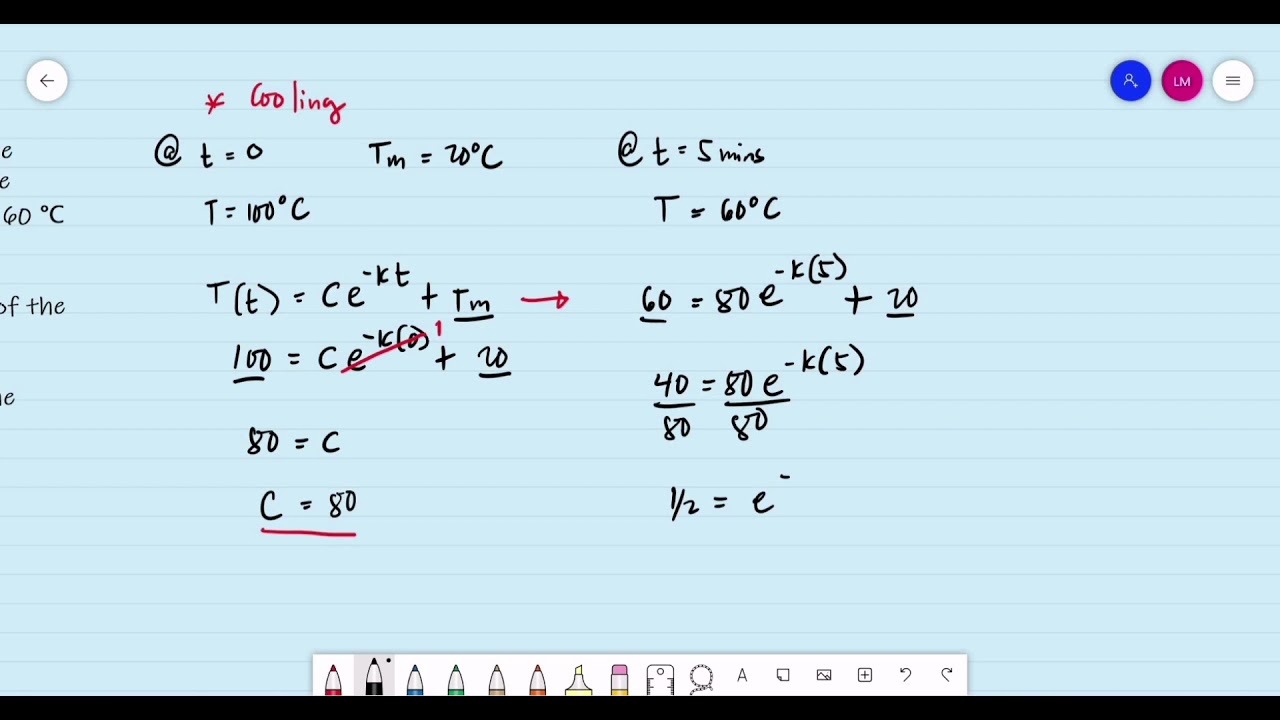 LM
* Cooling
e
e
60 °C
of the
ne
@ t = 0
Tm = 20°C
T = 100°C
T(t) = Ce^-kt + Tm →
100 = Ce^-k(0) 1 + 20
80 = C
C = 80
@ t = 5 mins
T = 60°C
60 = 80e^-k(5) + 20
40/80 = 80e^-k(5)/80
1/2 = e^-
A